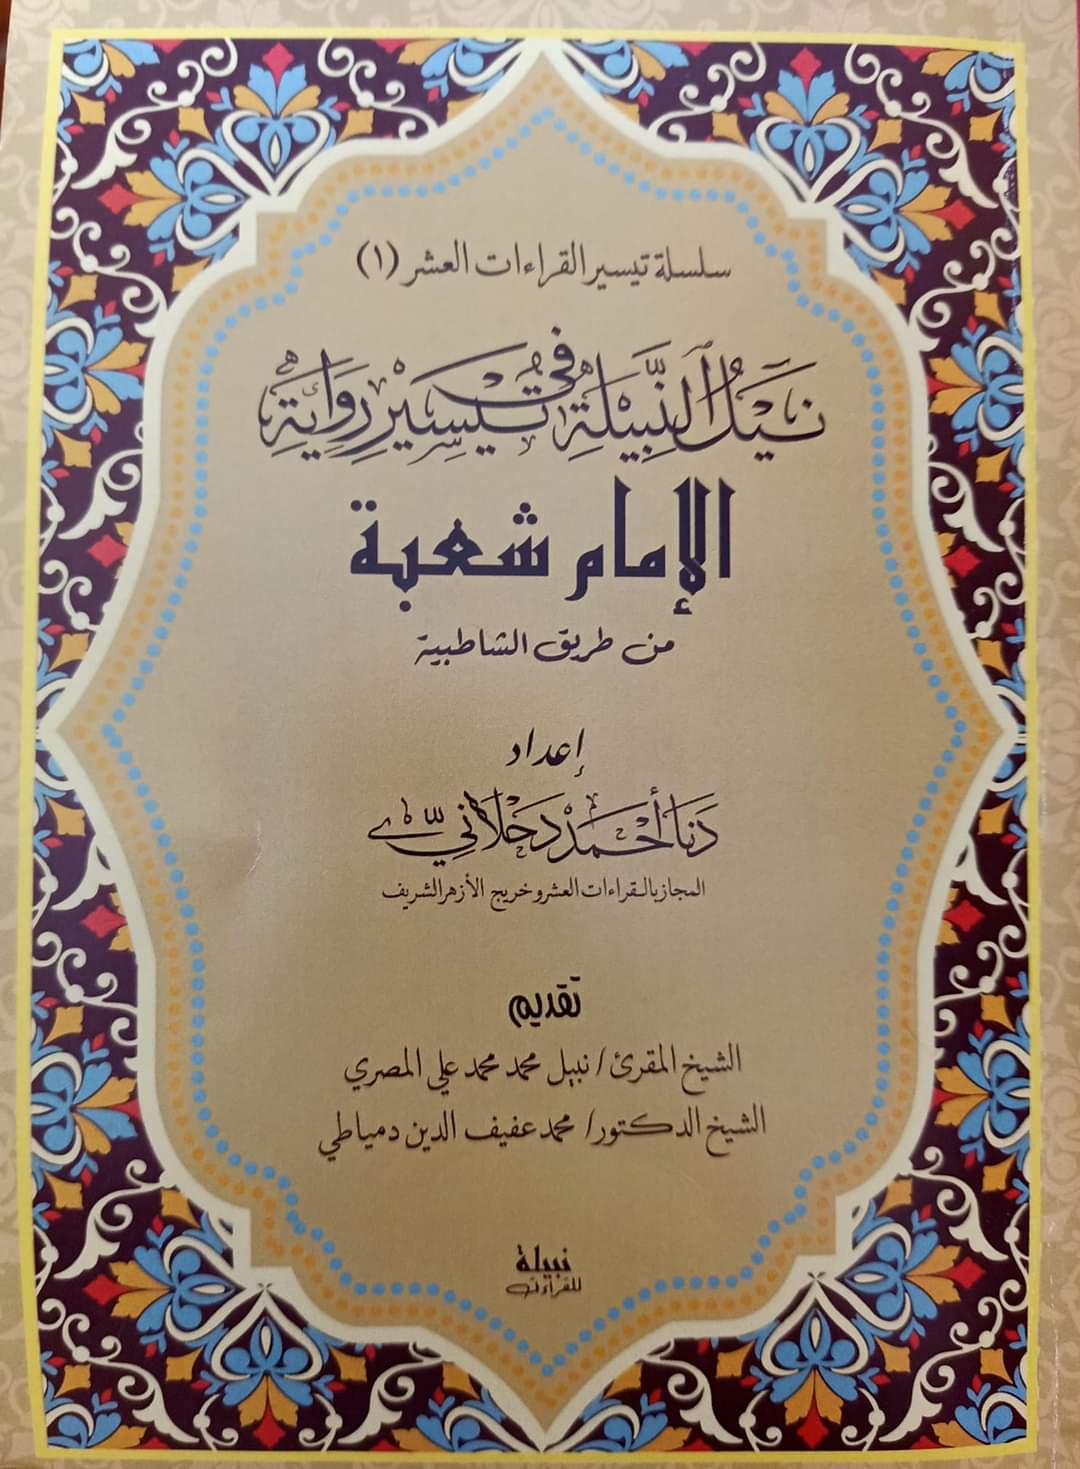 سلسلة تيسير القراءات العشر (١)
نَيْلُ النَّبِيْلَةِ فِي تَيْسِيْرِ رِوَايَةِ
الإمام شعبة
من طريق الشاطبية
إعداد
دَنَا أَحْمَدْ دَحْلَانِيّ
المجاز بالقراءات العشر وخريج الأزهر الشريف
تقديم
الشيخ المقرئ / نبيل محمد محمد علي المصري
الشيخ الدكتور/ محمد عفيف الدين دمياطي
نبيلة
للقراءات